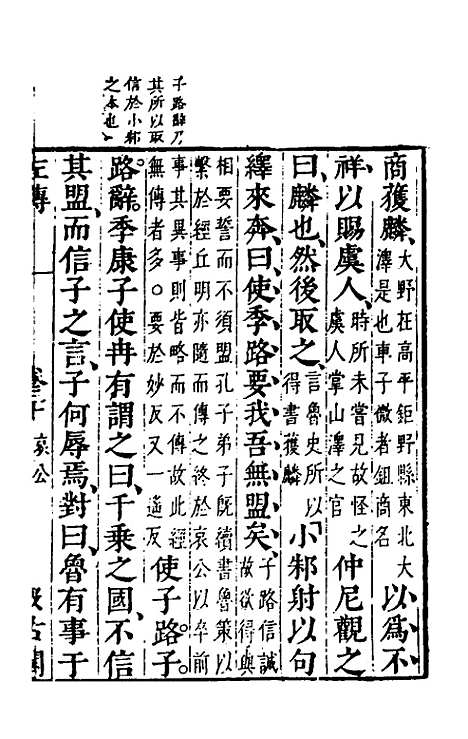 子路辭乃
其所以取
信於小邾
之本也
商獲麟、大野在高平鉅野縣東北大澤是也車子微者鉏商名以為不
祥、以賜虞人、時所未嘗見故怪之虞人掌山澤之官仲尼觀之
曰、麟也、然後取之、言魯史所以得書獲麟「小邾射以句
繹來奔、曰、使季路要我、吾無盟矣、子路信誠故欲得與
相要誓而不須盟孔子弟子既續書魯策以繫於經丘明亦隨而傳之終於哀公以卒前
事其異事則皆略而不傳故此經無傳者多○要於妙反又一遙反使子路。子
路辭。季康子使冉有謂之曰、千乘之國、不信
其盟、而信子之言、子何辱焉、對曰、魯有事于
左傳 哀公 汲古閣